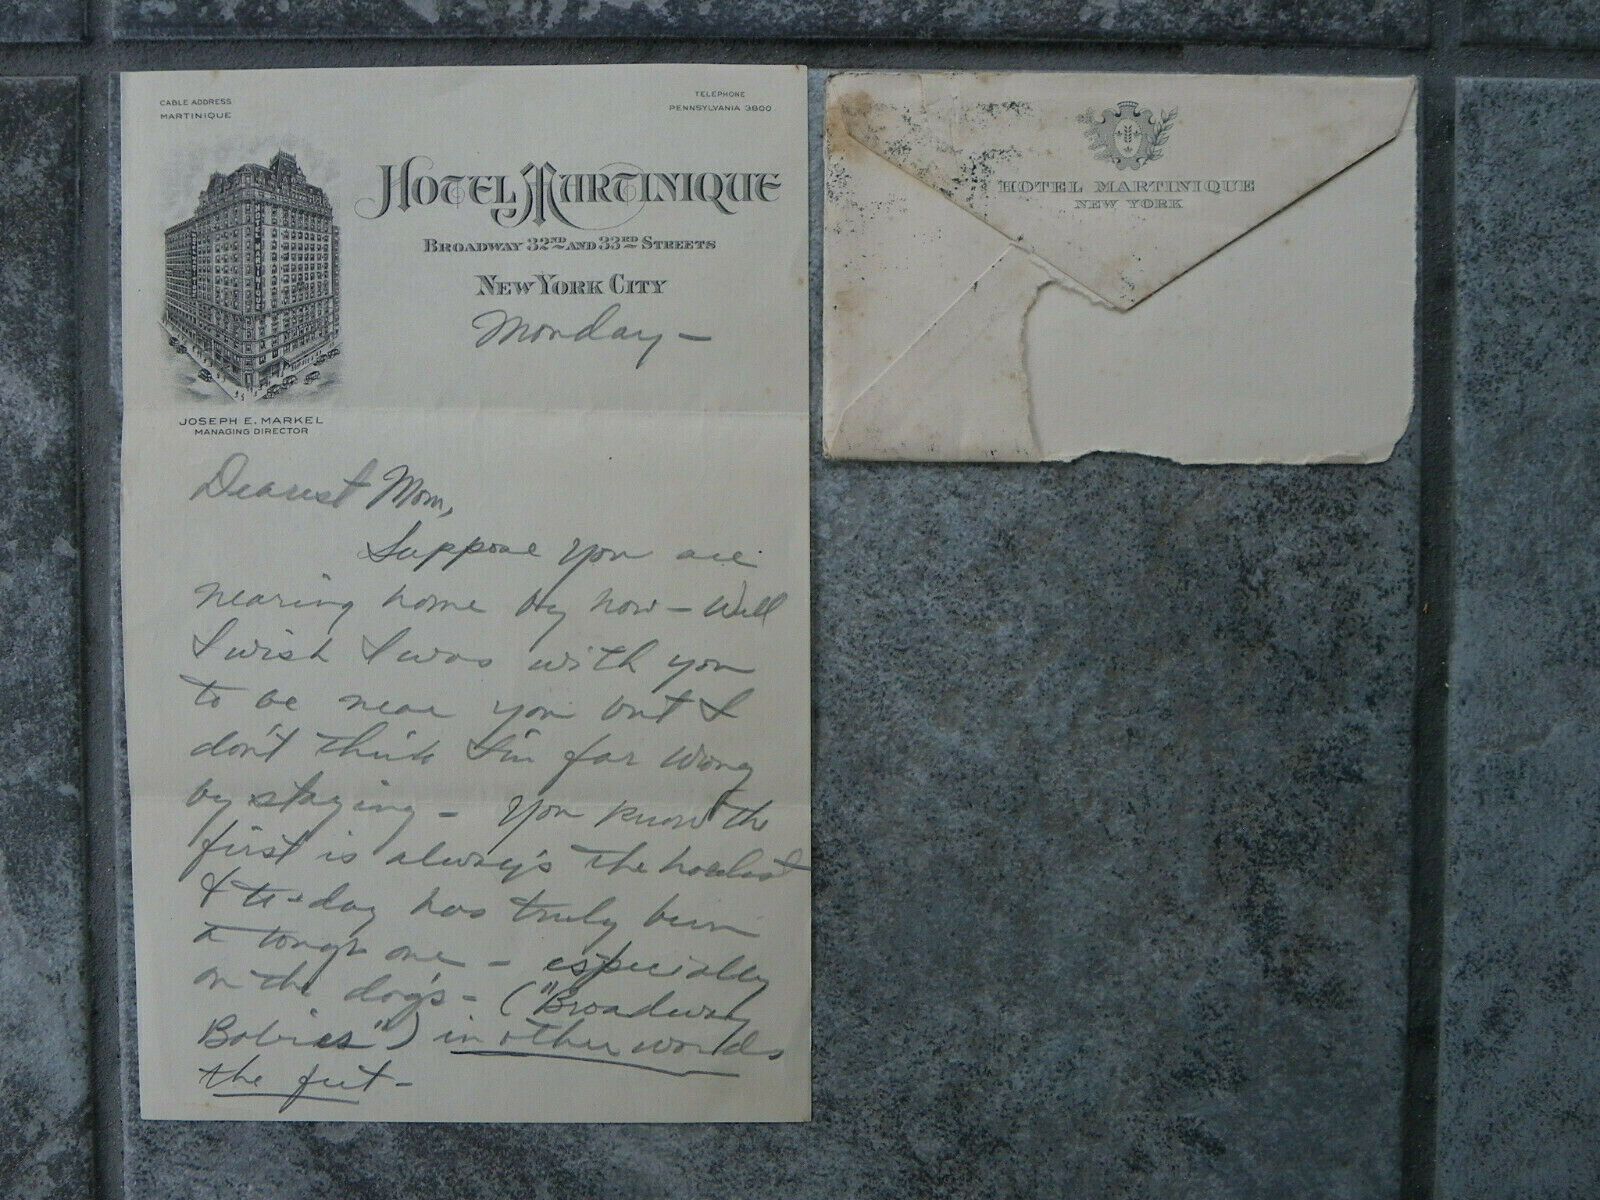 CABLE ADDRESS
MARTINIQUE
TELEPHONE
PENNSYLVANIA 3800
HOTEL MARTINIQUE
BROADWAY 32ND AND 33RD STREETS
NEW YORK CITY
Monday —
JOSEPH E. MARKEL
MANAGING DIRECTOR
Dearest Mom,
Suppose you are
nearing home by now — Well
I wish I was with you
to be near you but I
don't think I'm far wrong
by staying — You know the
first is always the hardest
& to-day has truly been
a tough one — especially
on the dog's — ("Broadway
Babies") in other words
the feet —
HOTEL MARTINIQUE
NEW YORK